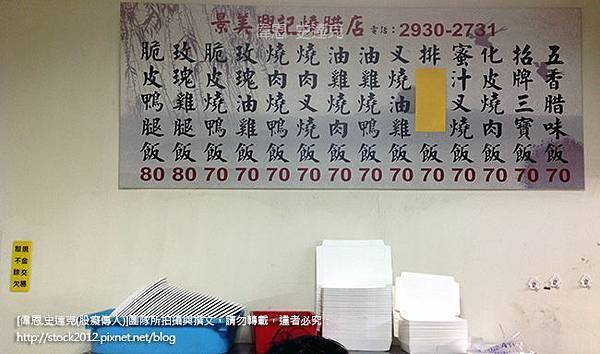 景美興記燒腊店 電話:2930-2731
五香腊味飯 70
招牌三寶飯 70
化皮燒肉飯 70
蜜汁叉燒飯 70
排飯 70
叉燒油雞飯 70
油雞燒鴨飯 70
油雞燒肉飯 70
燒肉叉燒飯 70
燒肉燒鴨飯 70
玫瑰油雞飯 70
脆皮燒鴨飯 70
玫瑰雞腿飯 80
脆皮鴨腿飯 80
韋恩 史達克
現金交易
恕不賒欠
[韋恩.史達克(股癡傳人)]團隊所拍攝與撰文，請勿轉載，違者必究.
http://stock2012.pixnet.net/blog